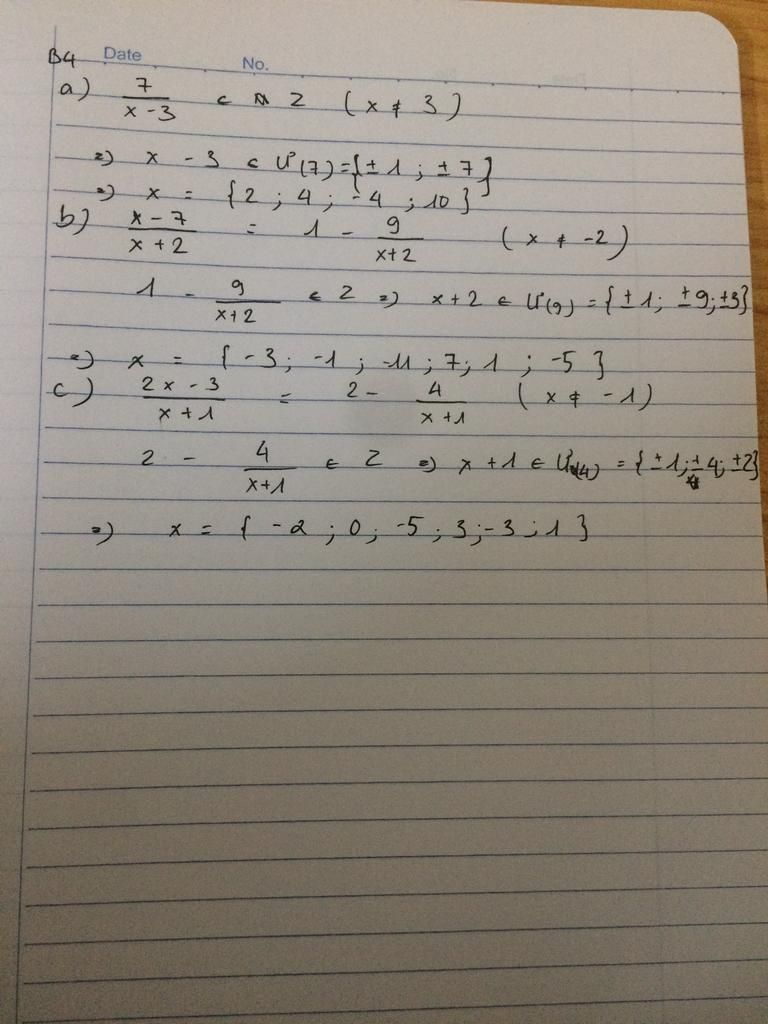 B4 Date No.
a) 7/(x-3) ∈ Z (x ≠ 3)
=) x - 3 ∈ Ư(7) = {± 1 ; ± 7}
=) x = {2 ; 4 ; -4 ; 10}
b) (x-7)/(x+2) = 1 - 9/(x+2) (x ≠ -2)
1 - 9/(x+2) ∈ Z =) x+2 ∈ Ư(9) = {± 1; ±9; ±3}
=) x = {-3 ; -1 ; -11 ; 7 ; 1 ; -5}
c) (2x-3)/(x+1) = 2 - 4/(x+1) (x ≠ -1)
2 - 4/(x+1) ∈ Z =) x+1 ∈ Ư(4) = {±1; ±4; ±2}
=) x = {-2 ; 0 ; -5 ; 3 ; -3 ; 1}